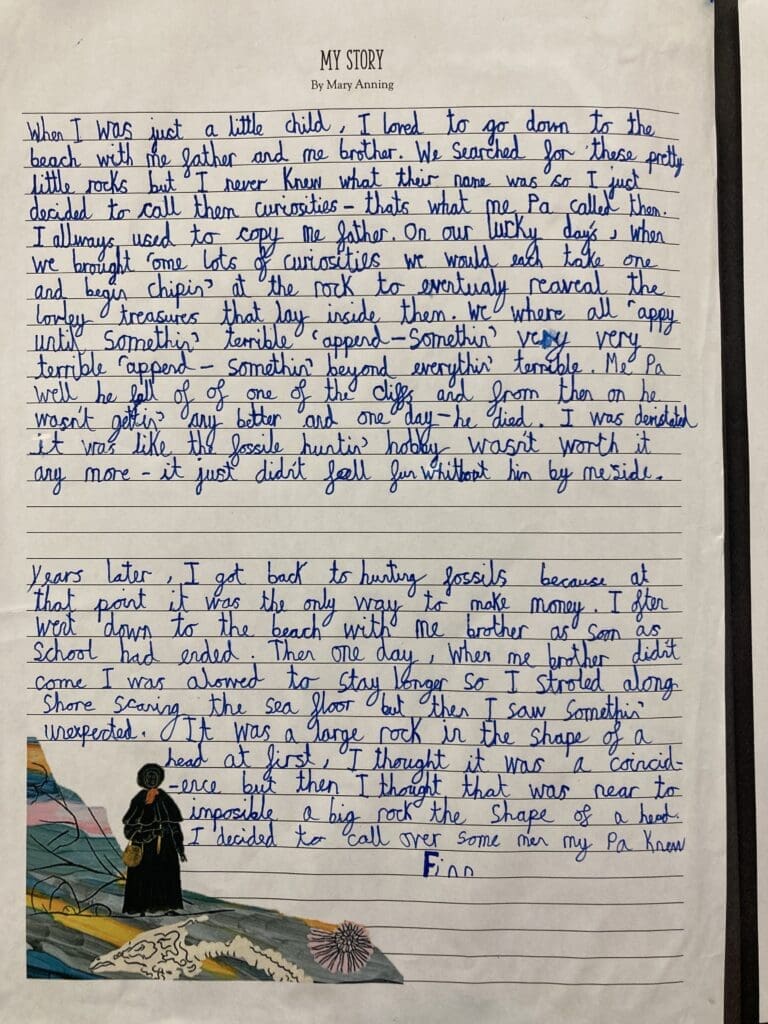 MY STORY
By Mary Anning
When I was just a little child, I loved to go down to the
beach with me father and me brother. We searched for these pretty
little rocks but I never knew what their name was so I just
decided to call them curiosities - thats what me Pa called them.
I allways used to copy me father. On our lucky day's, when
we brought 'ome lots of curiosities we would each take one
and begin chipin' at the rock to eventualy reaveal the
lovley treasures that lay inside them. We where all 'appy
until somethin' terrible 'append - Somethin' very very
terrible 'append - somethin' beyond everythin' terrible. Me Pa
well he fell of of one of the cliffs and from then on he
wasn't gettin' any better and one day - he died. I was devistated
it was like the fossile huntin' hobby wasn't worth it
any more - it just didn't feell fun whithoat him by me side.
Years later, I got back to hunting fossils because at
that point it was the only way to make money. I ofter
went down to the beach with me brother as soon as
school had ended. Then one day, when me brother didn't
come I was alowed to stay longer so I stroled along
shore scaring the sea floor but then I saw somethin'
unexpected. It was a large rock in the shape of a
head at first, I thought it was a coincid-
-ence but then I thought that was near to
imposible a big rock the shape of a head.
I decided to call over some men my Pa knew
Finn